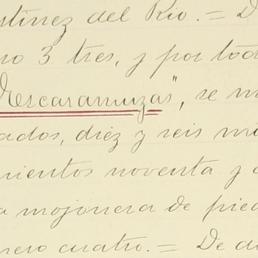 stinez del Rio. = D
no 3 tres, y por tod
Escaramuzas", se m
ados, diez y seis mi
mientos noventa y
a mojonera de pied
nero cuatro. = De d